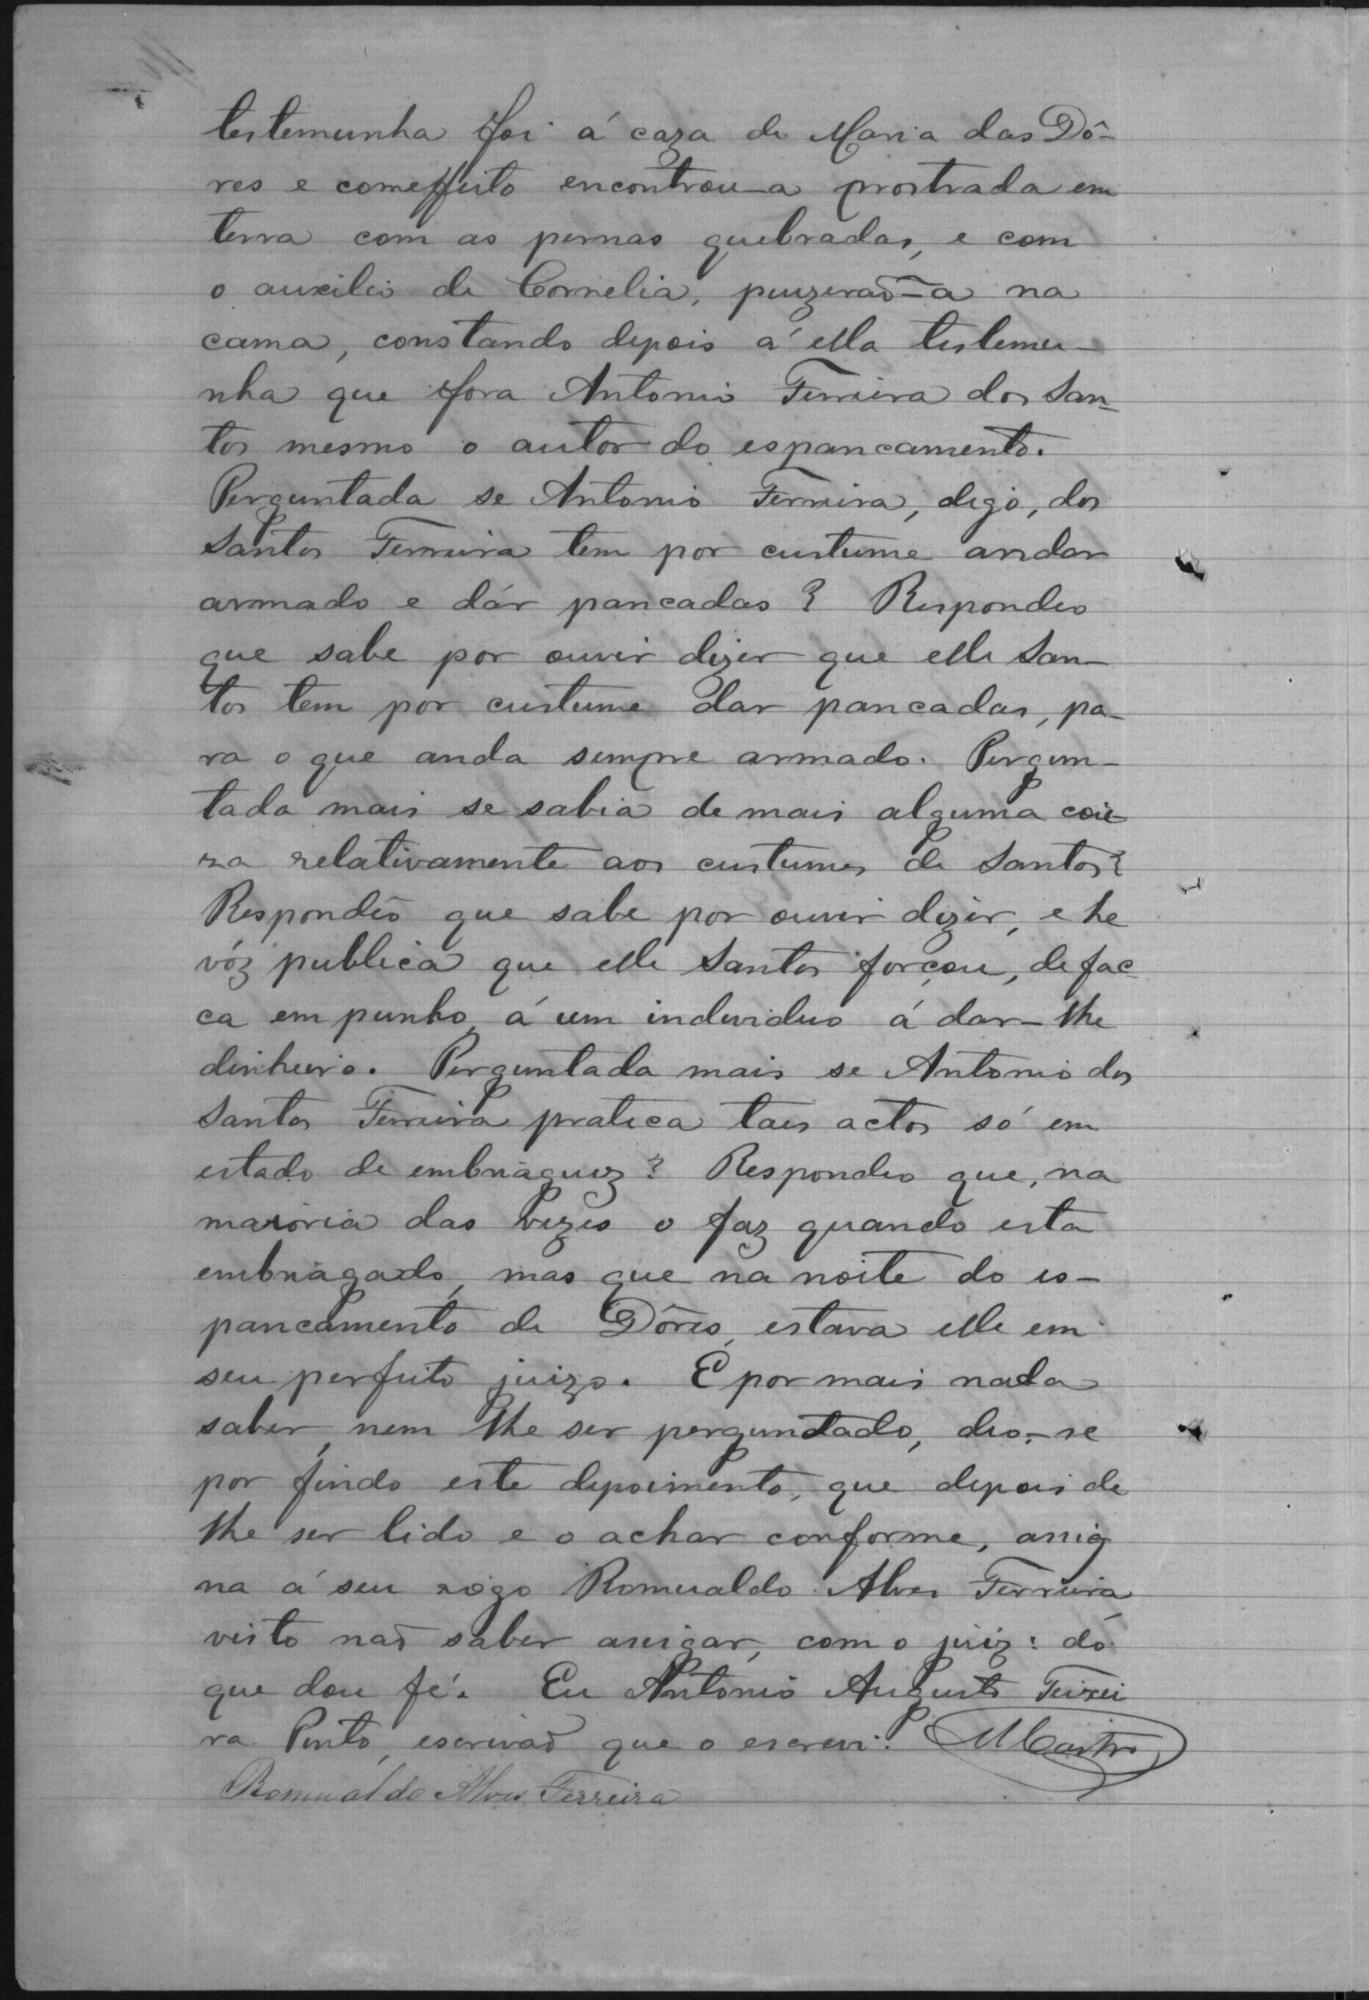 testemunha foi á caza de Maria das Dô-
res e comeffeito encontrou-a prostrada em
terra com as pernas quebradas, e com
o auxilio de Cornelia, puzeraõ-a na
cama, constando depois a' ella testemu-
nha que fora Antonio Ferreira dos San-
tos mesmo o autor do espancamento.
Perguntada se Antonio Ferreira, digo, dos
Santos Ferreira tem por custume andar
armado e dár pancadas? Respondeo
que sabe por ouvir dizer que elle San-
tos tem por custume dar pancadas, pa-
ra o que anda sempre armado. Pergun-
tada mais se sabia de mais alguma coi-
za relativamente aos custumes de Santos?
Respondeo que sabe por ouvir dizer, e he
vóz publica que elle Santos forçou, de fac-
ca em punho, á um individuo á dar-lhe
dinheiro. Perguntada mais se Antonio dos
Santos Ferreira pratica taes actos só em
estado de embriaguez? Respondeo que, na
maioria das vezes o faz quando esta
embriagado, mas que na noite do es-
pancamento de Dôres, estava elle em
seu perfeito juizo. E por mais nada
saber, nem lhe ser perguntado, deo-se
por findo este depoimento, que depois de
lhe ser lido e o achar conforme, assig
na a' seu rogo Romualdo Alves Ferreira
visto naõ saber assigar, com o juiz: dó
que dou fé. Eu Antonio Augusto Teixei
ra Pinto, escrivaõ que o escrevi. MCastro
Romualdo Alves Ferreira